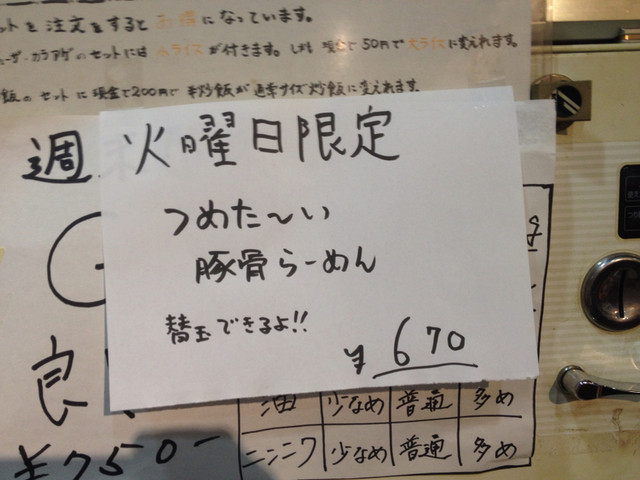 ットを注文をするとお得になっています。
ューザ・カラアゲのセットには小ライスが付きます。しかも現金で50円で大ライスに変えれます。
飯のセットに現金で200円で半炒飯が通常サイズ炒飯に変えれます。
週
火曜日限定
つめた〜い
豚骨らーめん
替玉できるよ!!
¥670
良
¥750-
油 少なめ 普通 多め
ニンニク 少なめ 普通 多め